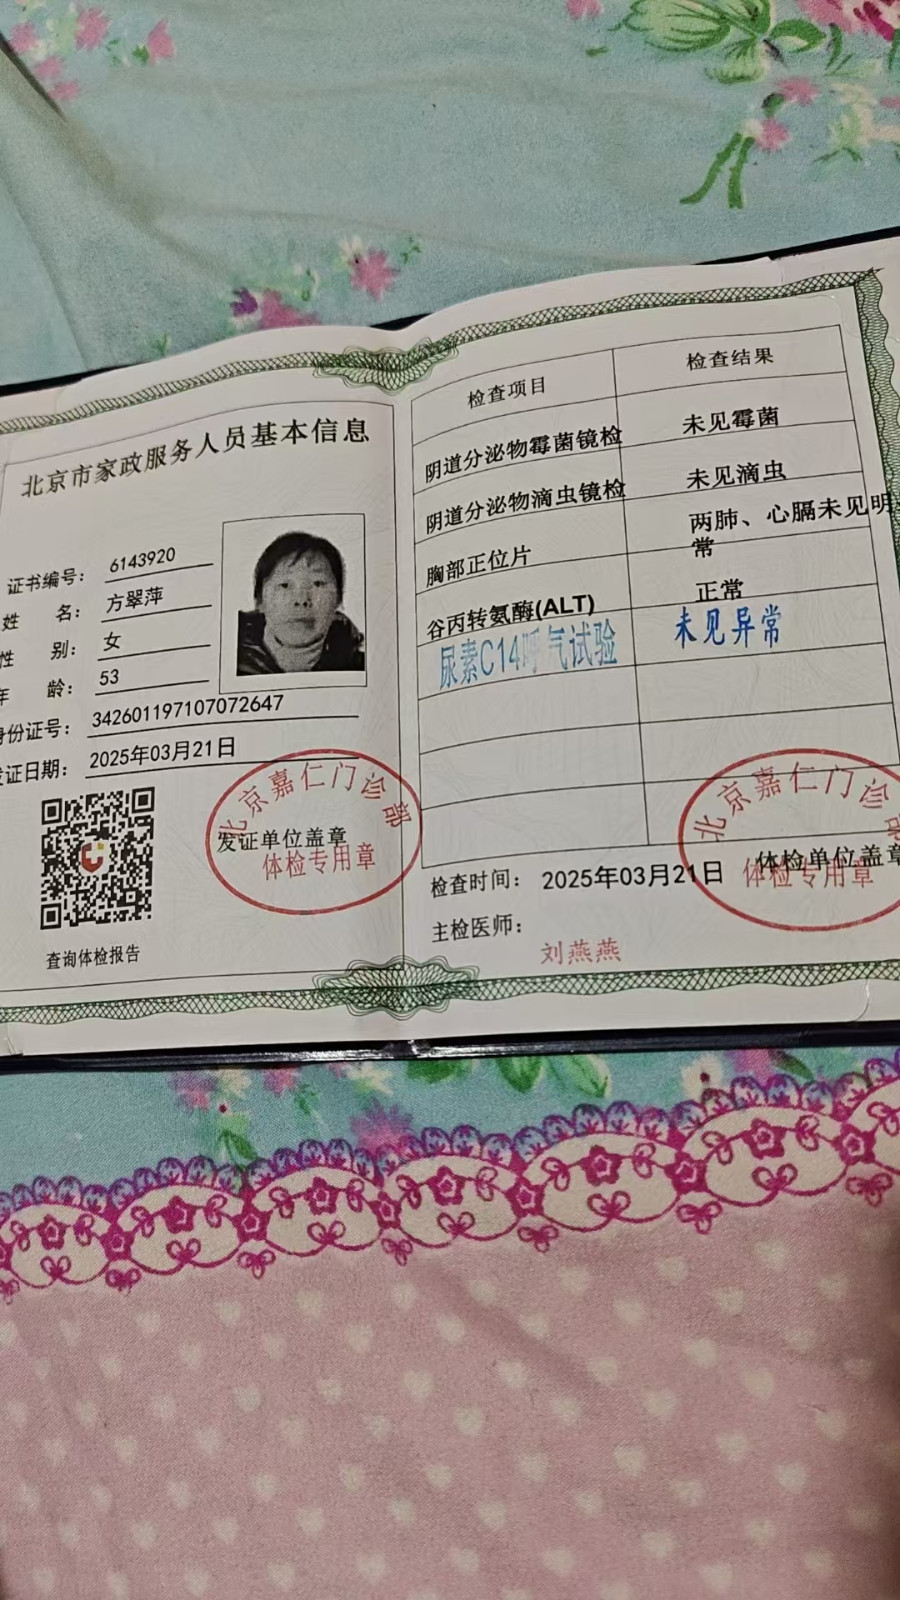 北京市家政服务人员基本信息
证书编号： 6143920
姓 名： 方翠萍
性 别： 女
年 龄： 53
身份证号： 342601197107072647
发证日期： 2025年03月21日
北京嘉仁门诊部
发证单位盖章
体检专用章
查询体检报告
检查项目 检查结果
阴道分泌物霉菌镜检 未见霉菌
阴道分泌物滴虫镜检 未见滴虫
胸部正位片 两肺、心膈未见明
常
谷丙转氨酶(ALT) 正常
尿素C14呼气试验 未见异常
北京嘉仁门诊部
检查时间： 2025年03月21日
体检单位盖章
体检专用章
主检医师：
刘燕燕